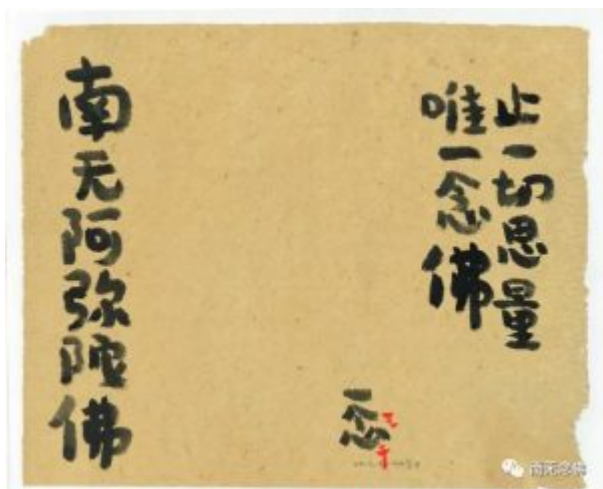 止一切思量
唯一念佛
一念
南无阿弥陀佛
南无念佛